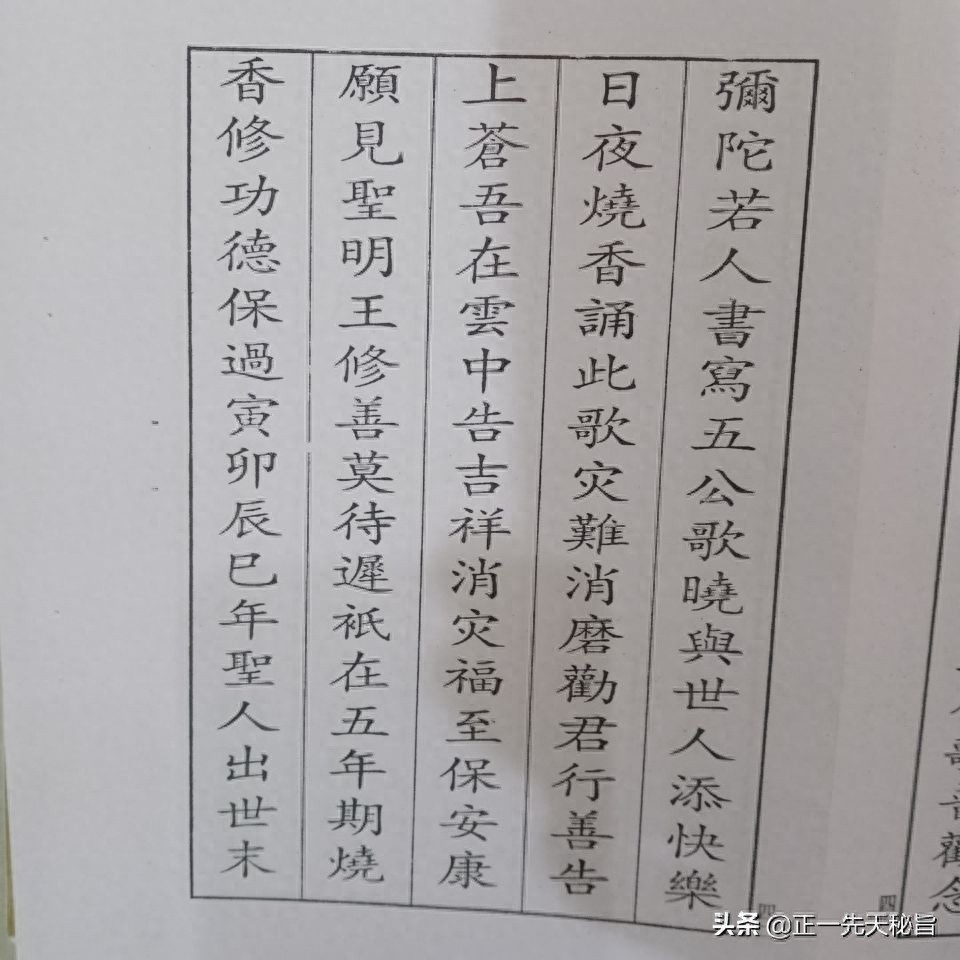 彌陀若人書寫五公歌曉與世人添快樂
日夜燒香誦此歌灾難消磨勸君行善告
上蒼吾在雲中告吉祥消灾福至保安康
願見聖明王修善莫待遲祇在五年期燒
香修功德保過寅卯辰巳年聖人出世末
四
四
頭条 @正一先天秘旨